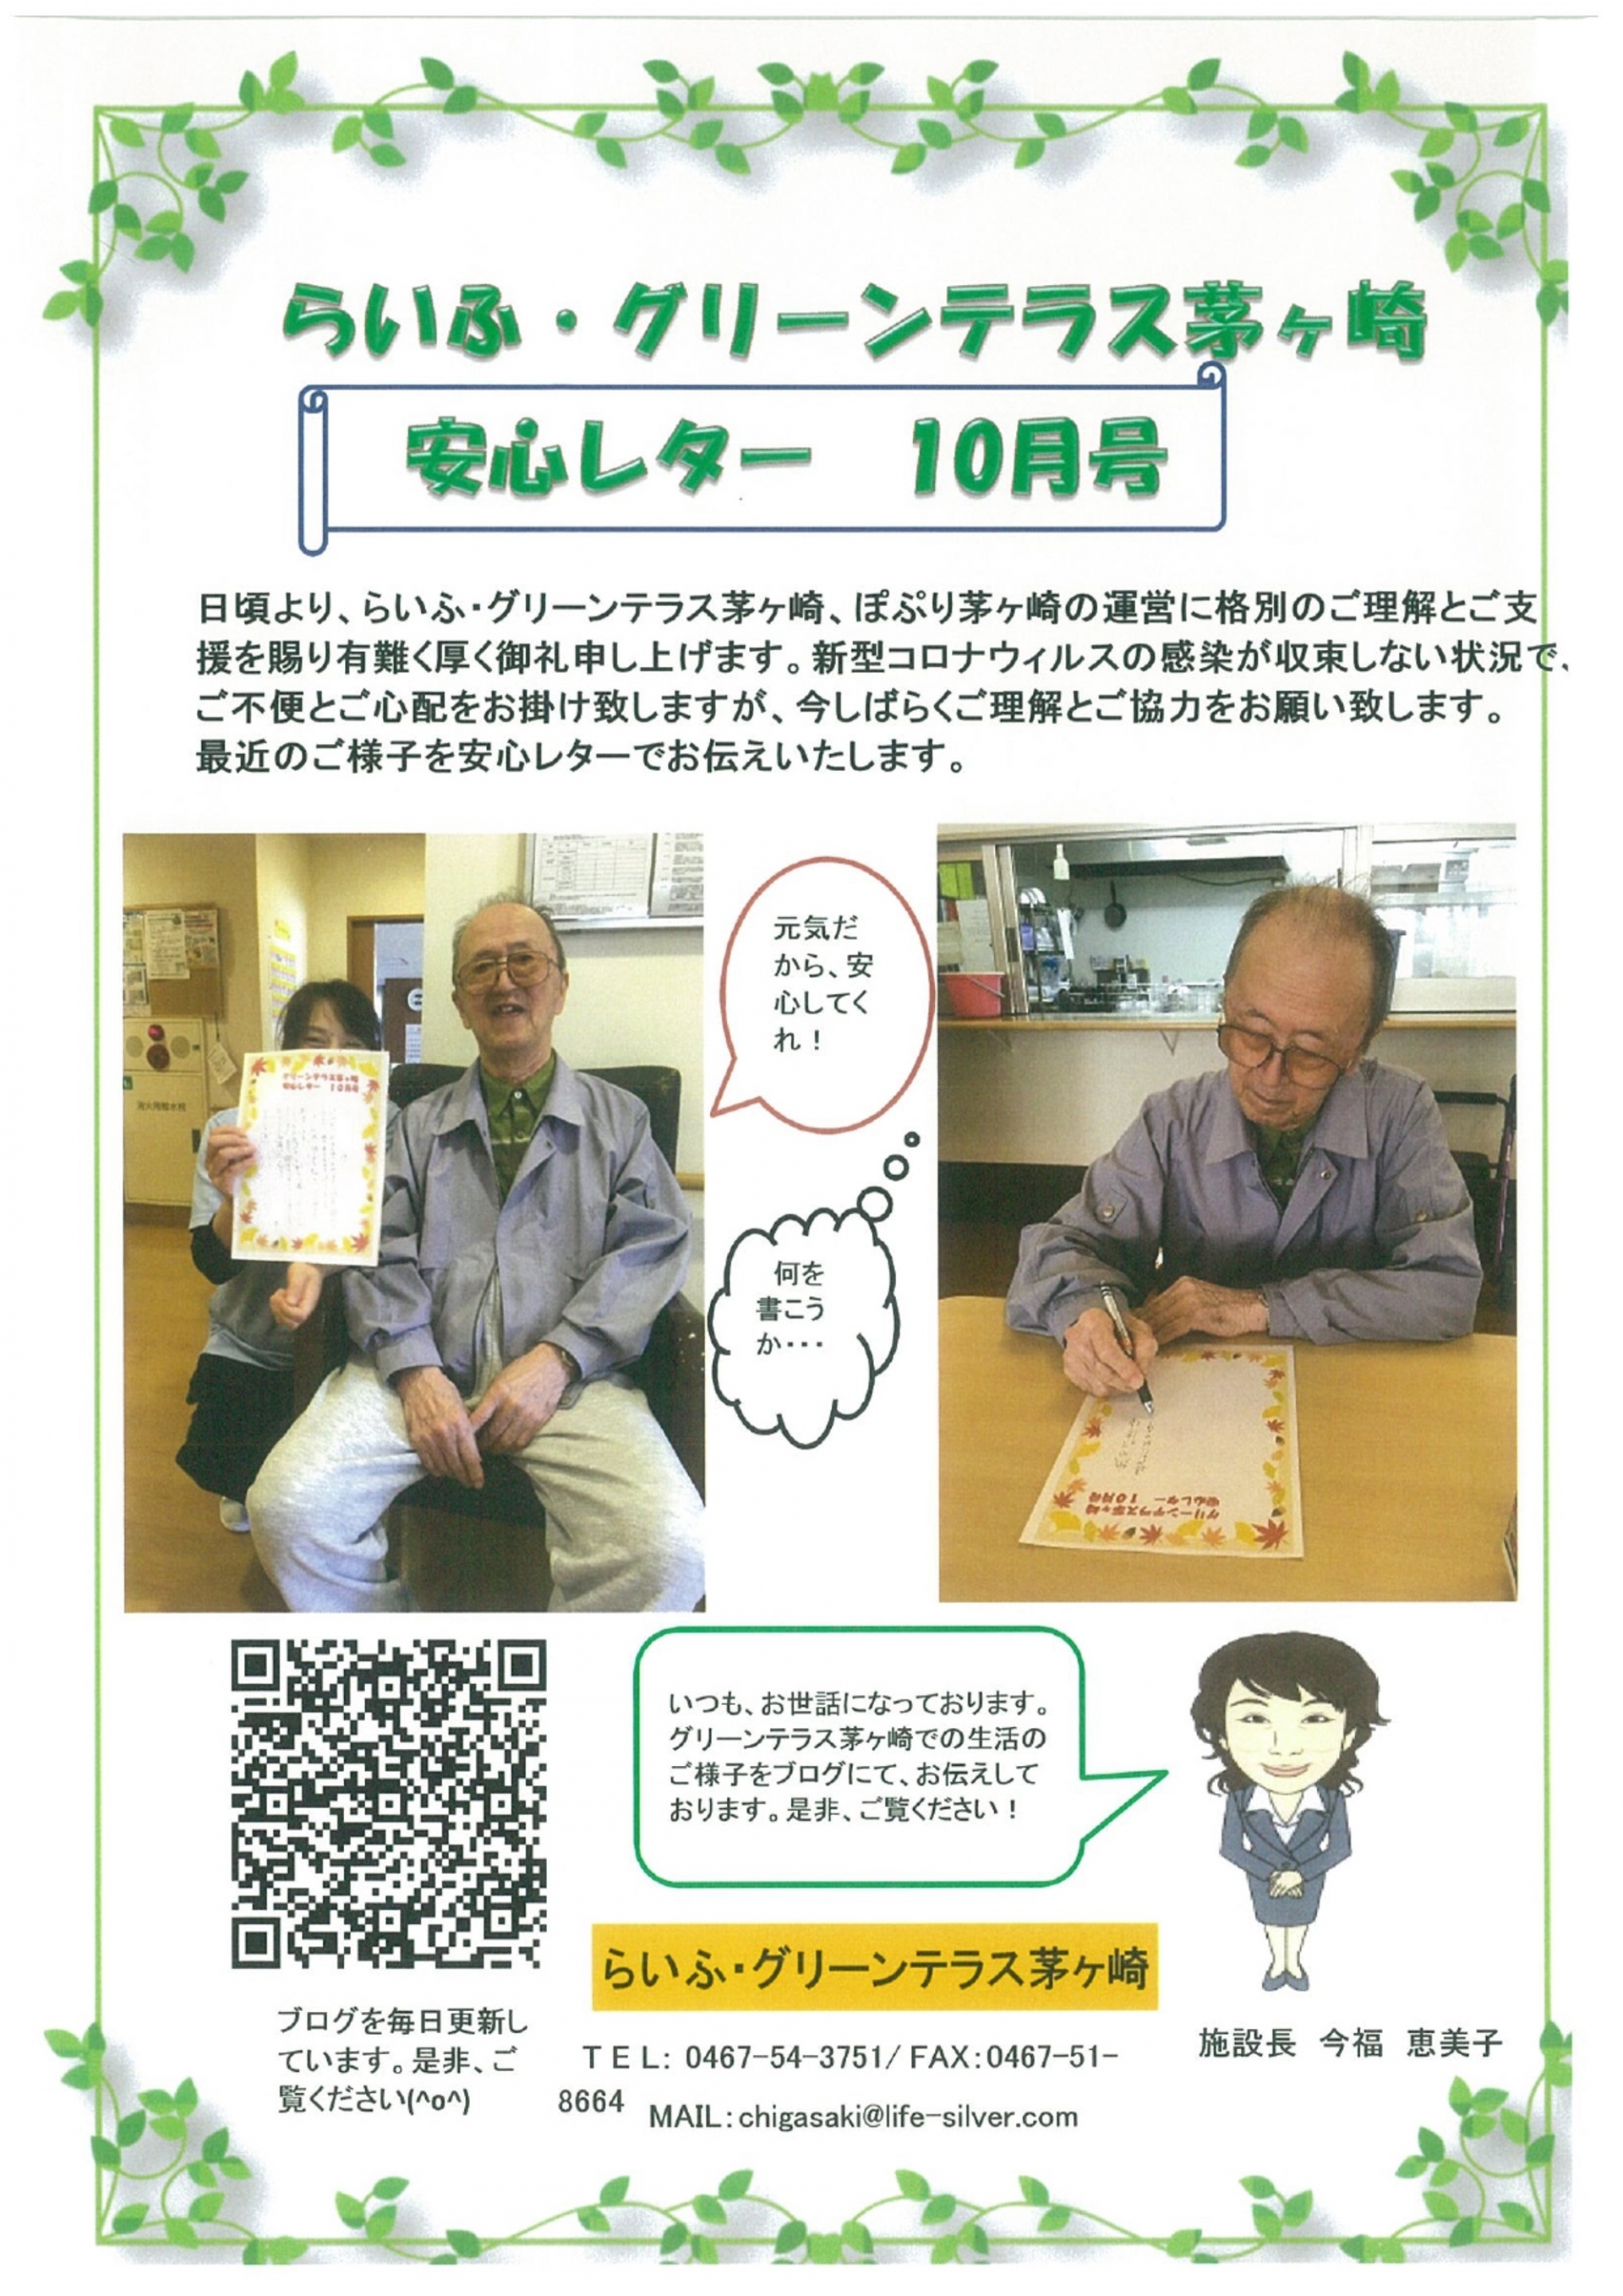 らいふ・グリーンテラス茅ヶ崎
安心レター　10月号
日頃より、らいふ・グリーンテラス茅ヶ崎、ぽぷり茅ヶ崎の運営に格別のご理解とご支
援を賜り有難く厚く御礼申し上げます。新型コロナウィルスの感染が収束しない状況で、
ご不便とご心配をお掛け致しますが、今しばらくご理解とご協力をお願い致します。
最近のご様子を安心レターでお伝えいたします。
元気だ
から、安
心してく
れ！
何を
書こう
か・・・
グリーンテラス茅ヶ崎
安心レター　10月号
消火用散水栓
グリーンテラス茅ヶ崎
安心レター　10月号
いつも、お世話になっております。
グリーンテラス茅ヶ崎での生活の
ご様子をブログにて、お伝えして
おります。是非、ご覧ください！
らいふ・グリーンテラス茅ヶ崎
ブログを毎日更新し
ています。是非、ご
覧ください(^o^)
ＴＥＬ: 0467-54-3751/ FAX:0467-51-
8664
MAIL:chigasaki@life-silver.com
施設長　今福　恵美子